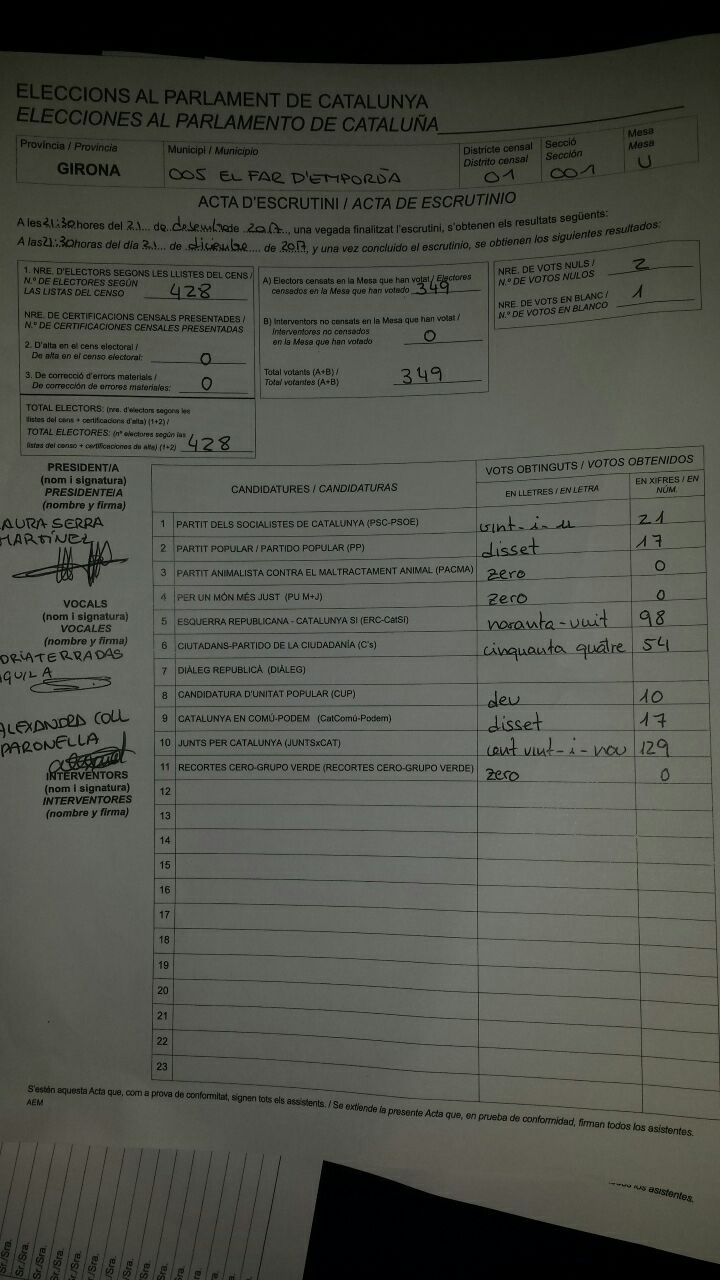 ELECCIONS AL PARLAMENT DE CATALUNYA
ELECCIONES AL PARLAMENTO DE CATALUÑA
Província / Provincia
GIRONA
Municipi / Municipio
005 EL FAR D'EMPORDÀ
Districte censal
Distrito censal
01
Secció
Sección
001
Mesa
Mesa
U
ACTA D'ESCRUTINI / ACTA DE ESCRUTINIO
A les 21:30 hores del 21... de desembre de 2017..., una vegada finalitzat l'escrutini, s'obtenen els resultats següents:
A las 21:30 horas del día 21... de diciembre.... de 2017, y una vez concluido el escrutinio, se obtienen los siguientes resultados:
1. NRE. D'ELECTORS SEGONS LES LLISTES DEL CENS /
N.º DE ELECTORES SEGÚN
LAS LISTAS DEL CENSO 428
NRE. DE CERTIFICACIONS CENSALS PRESENTADES /
N.º DE CERTIFICACIONES CENSALES PRESENTADAS
2. D'alta en el cens electoral /
De alta en el censo electoral: 0
3. De correcció d'errors materials /
De corrección de errores materiales: 0
TOTAL ELECTORS: (nre. d'electors segons les
llistes del cens + certificacions d'alta) (1+2) /
TOTAL ELECTORES: (nº electores según las
listas del censo + certificaciones de alta) (1+2) 428
A) Electors censats en la Mesa que han votat / Electores
censados en la Mesa que han votado 349
B) Interventors no censats en la Mesa que han votat /
Interventores no censados
en la Mesa que han votado 0
Total votants (A+B) /
Total votantes (A+B) 349
NRE. DE VOTS NULS /
N.º DE VOTOS NULOS 2
NRE. DE VOTS EN BLANC /
N.º DE VOTOS EN BLANCO 1
PRESIDENT/A
(nom i signatura)
PRESIDENTE/A
(nombre y firma)
LAURA SERRA
MARTÍNEZ
VOCALS
(nom i signatura)
VOCALES
(nombre y firma)
DRIÀ TERRADAS
AGUILA
ALEXANDRA COLL
PARONELLA
INTERVENTORS
(nom i signatura)
INTERVENTORES
(nombre y firma)
CANDIDATURES / CANDIDATURAS
VOTS OBTINGUTS / VOTOS OBTENIDOS
EN LLETRES / EN LETRA
EN XIFRES / EN NÚM.
1 PARTIT DELS SOCIALISTES DE CATALUNYA (PSC-PSOE) vint-i-u 21
2 PARTIT POPULAR / PARTIDO POPULAR (PP) disset 17
3 PARTIT ANIMALISTA CONTRA EL MALTRACTAMENT ANIMAL (PACMA) zero 0
4 PER UN MÓN MÉS JUST (PU M+J) zero 0
5 ESQUERRA REPUBLICANA - CATALUNYA SI (ERC-CatSí) noranta-vuit 98
6 CIUTADANS-PARTIDO DE LA CIUDADANÍA (C's) cinquanta quatre 54
7 DIÀLEG REPUBLICÀ (DIÀLEG)
8 CANDIDATURA D'UNITAT POPULAR (CUP) deu 10
9 CATALUNYA EN COMÚ-PODEM (CatComú-Podem) disset 17
10 JUNTS PER CATALUNYA (JUNTSxCAT) cent vint-i-nou 129
11 RECORTES CERO-GRUPO VERDE (RECORTES CERO-GRUPO VERDE) zero 0
12
13
14
15
16
17
18
19
20
21
22
23
S'estén aquesta Acta que, com a prova de conformitat, signen tots els assistents. / Se extiende la presente Acta que, en prueba de conformidad, firman todos los asistentes.
AEM
los asistentes.
Sr./Sra.
Sr./Sra.
Sr./Sra.
Sr./Sra.
Sr./Sra.
Sr./Sra.
Sr./Sra.
Sr./Sra.
Sr./Sra.